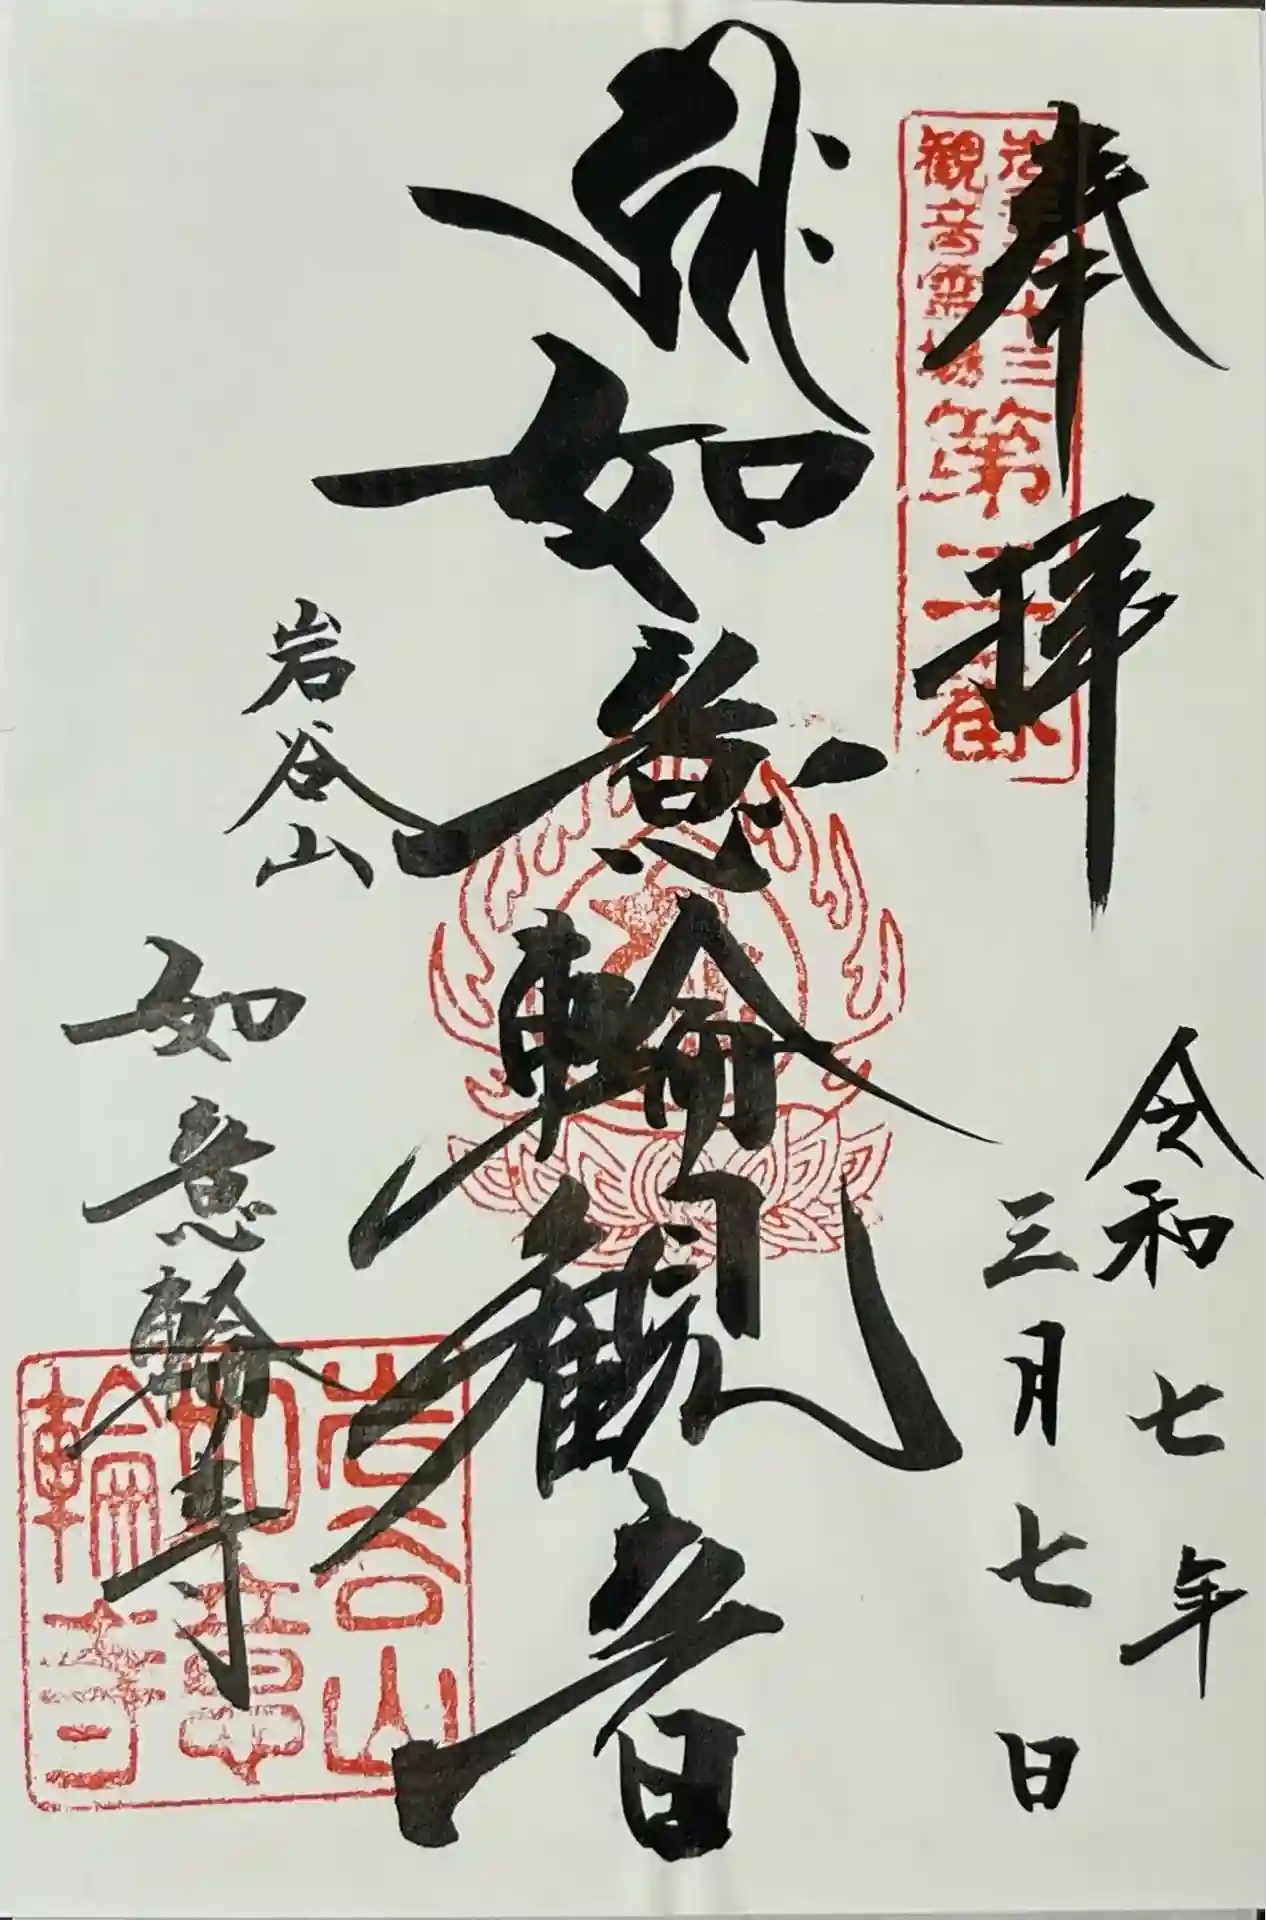 奉拝
令和七年
三月七日
三十三
観音霊場
第
番
如意輪観音
岩谷山
如意輪寺
岩谷山
如意
輪寺